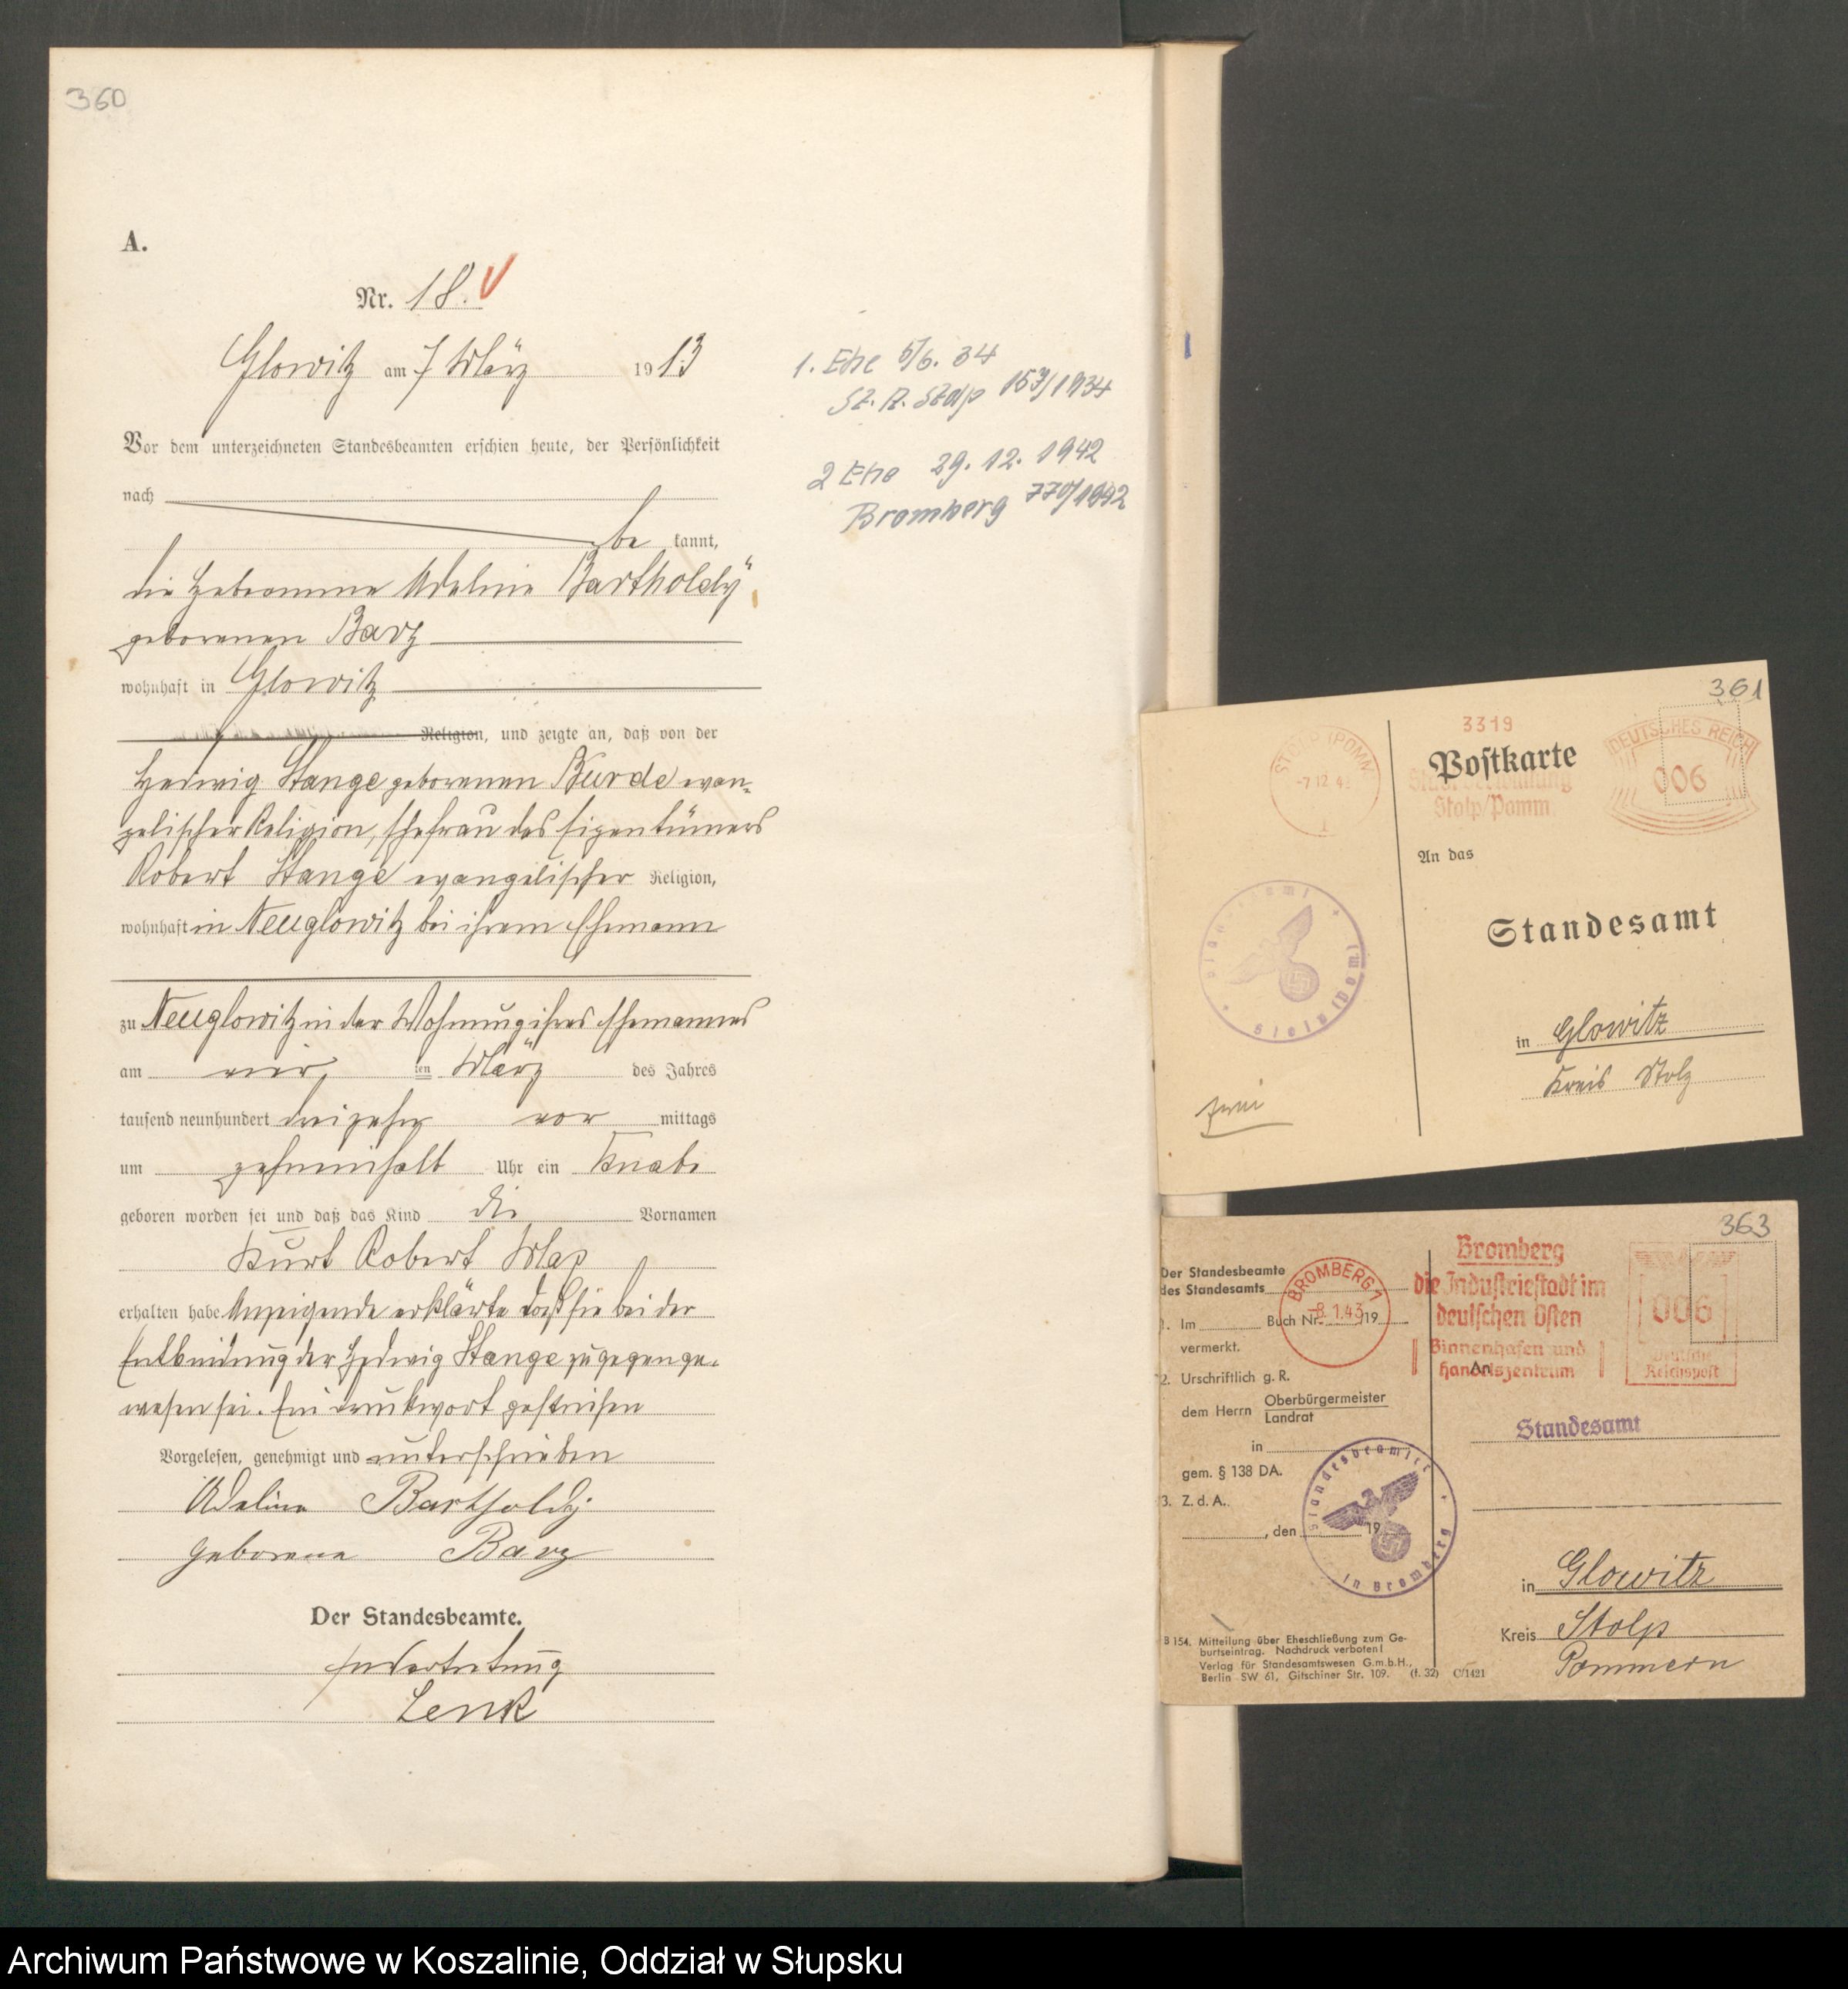 360
A.
Nr. 18. V
Glowitz am 7 März 1913
Vor dem unterzeichneten Standesbeamten erschien heute, der Persönlichkeit
nach
be kannt,
die Hebamme Adeline Bartholdy
geborenen Barz
wohnhaft in Glowitz
Religion, und zeigte an, daß von der
Hedwig Stange geborenen Burde evan-
gelischer Religion, Ehefrau des Eigentümers
Robert Stange evangelischer Religion,
wohnhaft in Neuglowitz bei ihrem Ehemann
zu Neuglowitz in der Wohnung ihres Ehemannes
am vier ten März des Jahres
tausend neunhundert dreizehn vor mittags
um zehneinhalb Uhr ein Knabe
geboren worden sei und daß das Kind die Vornamen
Kurt Robert Max
erhalten habe. Anzeigende erklärte daß sie bei der
Entbindung der Hedwig Stange zugegen ge-
wesen sei. Ein Druckwort gestrichen
Vorgelesen, genehmigt und unterschrieben
Adeline Bartholdy
geborene Barz
Der Standesbeamte.
In Vertretung
Lenk
1. Ehe 5/6. 34
St. A. Stolp 157/1934
2 Ehe 29. 12. 1942
Bromberg 770/1942
361
3319
Postkarte
STOLP (POMM)
-7 12 4
Stolp/Pomm.
DEUTSCHES REICH
006
An das
Standesamt
in Glowitz
Kreis Stolp
Stolp (Pom)
363
Der Standesbeamte
des Standesamts
1. Im Buch Nr. 19
vermerkt.
2. Urschriftlich g. R.
dem Herrn Oberbürgermeister
Landrat
in
gem. § 138 DA.
3. Z. d. A.
, den 19
BROMBERG 1
-8. 1. 43
Bromberg
die Industriestadt im
deutschen Osten
Binnenhafen und
Handelszentrum
006
Deutsche
Reichspost
An
Standesamt
Standesbeamter
in Bromberg
in Glowitz
Kreis Stolp
Pommern
B 154. Mitteilung über Eheschließung zum Ge-
burtseintrag. Nachdruck verboten!
Verlag für Standesamtswesen G.m.b.H.,
Berlin SW 61, Gitschiner Str. 109. (f. 32) C/1421
Archiwum Państwowe w Koszalinie, Oddział w Słupsku